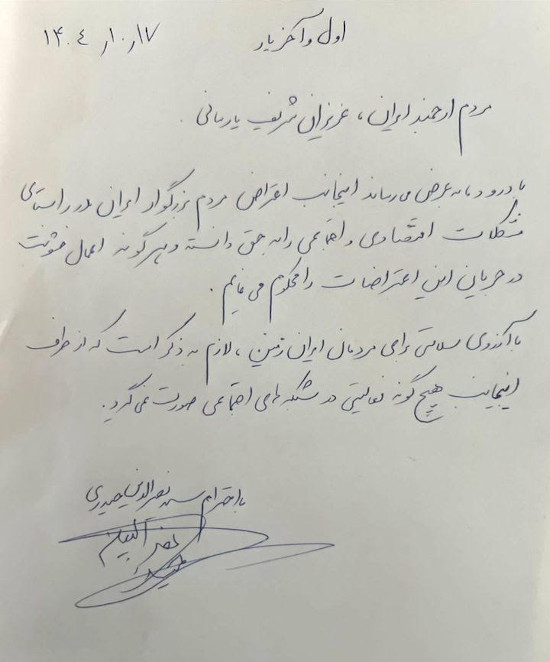 اول و آخر یار
۱۴۰۴/۱۰/۱۷
مردم ارجمند ایران، عزیزان شریف یارسانی.
با درود به عرض می‌رساند اینجانب اعتراض مردم بزرگوار ایران در راستای
مشکلات اقتصادی و اجتماعی را به حق دانسته و هرگونه اعمال خشونت
در جریان این اعتراضات را محکوم می‌نمایم.
با آرزوی سلامتی برای مردمان ایران زمین، لازم به ذکر است که از طرف
اینجانب هیچ گونه فعالیتی در شبکه‌های اجتماعی صورت نمی‌گیرد.
با احترام سید نصرالدین حیدری